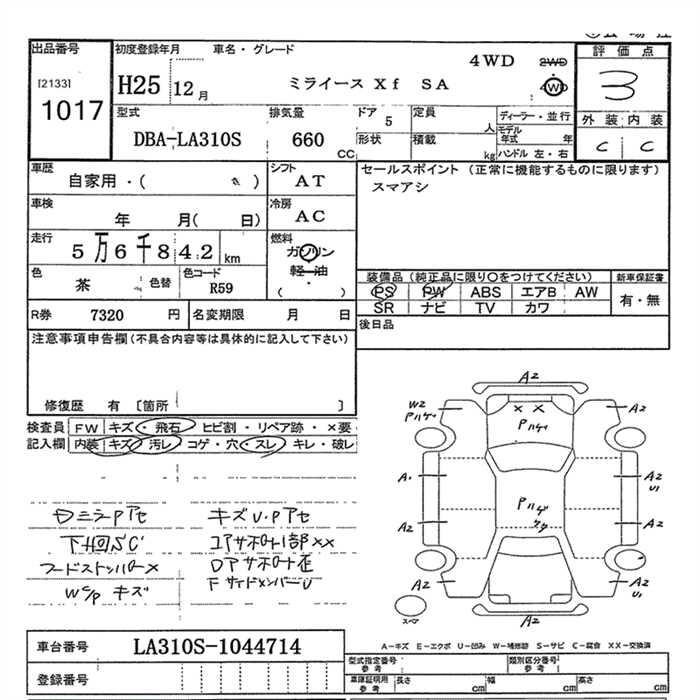 出品番号
[2133]
1017
初度登録年月 車名・グレード
H25 12月 ミライース Xf SA 4WD 2WD
4WD
評価点
3
外装 内装
C C
型式 排気量 ドア 5 定員 人 ディーラー・並行
DBA-LA310S 660 CC 形状 積載 kg モデル年式 年
ハンドル 左・右
車歴 自家用・( )
シフト AT
セールスポイント (正常に機能するものに限ります)
スマアシ
車検 年 月( 日)
冷房 AC
走行 5万6千842km
燃料 ガソリン
軽油
・
( )
色 茶 色替 色コード R59
装備品(純正品に限り〇をつけてください) 新車保証書
PS PW ABS エアB AW 有・無
SR ナビ TV カワ
R券 7320円 名変期限 月 日
後日品
注意事項申告欄(不具合内容等は具体的に記入して下さい)
修復歴 有 〔箇所 〕
検査員 FW キズ・飛石 ヒビ割・リペア跡・×要
記入欄 内装 キズ 汚レ コゲ・穴・スレ キレ・破レ
キズU・Pアセ
下回SC
コアサポート1部XX
W/P キズ
FサイドメンバーU
A2
W2
Pハゲ
X X
Pハゲ
A2
A1
Pハゲ
A2
U1
A2
A2
A2
A2
U1
スペア
A2
A-キズ E-エクボ U-凹み W-補修跡 S-サビ C-腐食 XX-交換済
車台番号 LA310S-1044714
登録番号
型式指定番号 参考 類別区分番号 参考
車庫証明用 参考 長さ cm 幅 cm 高さ cm